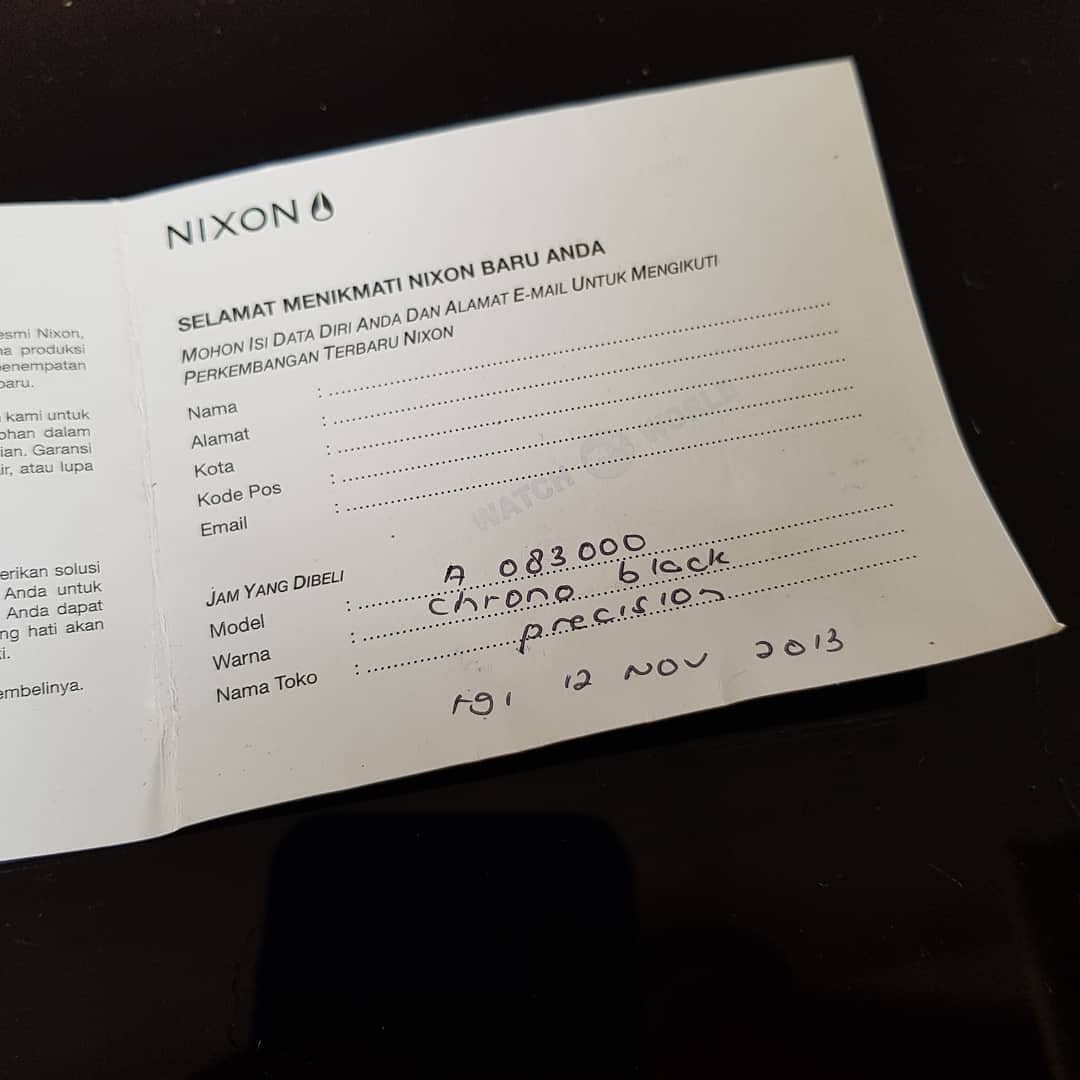 NIXON
SELAMAT MENIKMATI NIXON BARU ANDA
MOHON ISI DATA DIRI ANDA DAN ALAMAT E-MAIL UNTUK MENGIKUTI
PERKEMBANGAN TERBARU NIXON
Nama :
Alamat :
Kota :
Kode Pos :
Email :
WATCH WORLD
JAM YANG DIBELI
Model : A 083000
Warna : chrono black
Nama Toko : precision
tgl 12 NOV 2013
esmi Nixon,
produksi
penempatan
baru.
kami untuk
dalam
Garansi
atau lupa
erikan solusi
Anda untuk
Anda dapat
hati akan
embelinya.